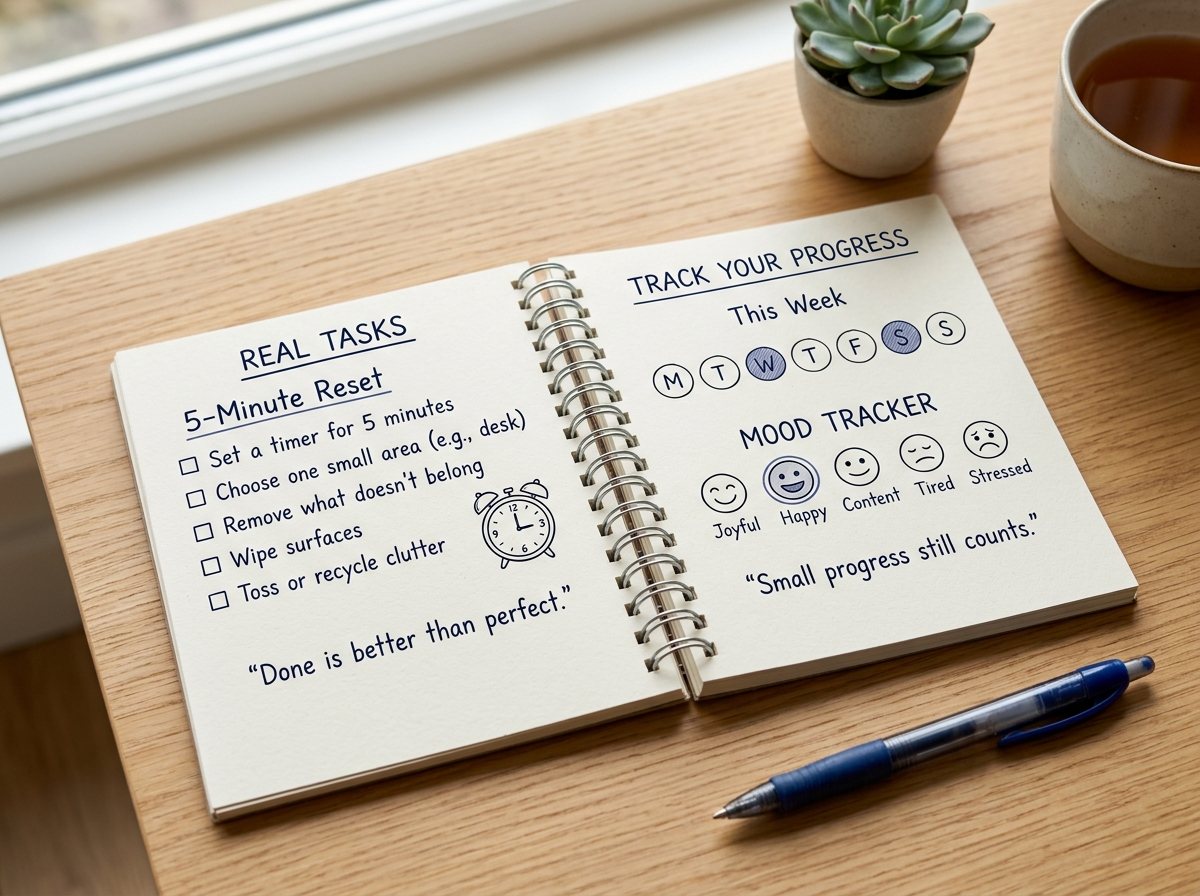 REAL TASKS
5-Minute Reset
Set a timer for 5 minutes
Choose one small area (e.g., desk)
Remove what doesn't belong
Wipe surfaces
Toss or recycle clutter
12
9
3
6
"Done is better than perfect."
TRACK YOUR PROGRESS
This Week
M T W T F S S
MOOD TRACKER
Joyful Happy Content Tired Stressed
"Small progress still counts."